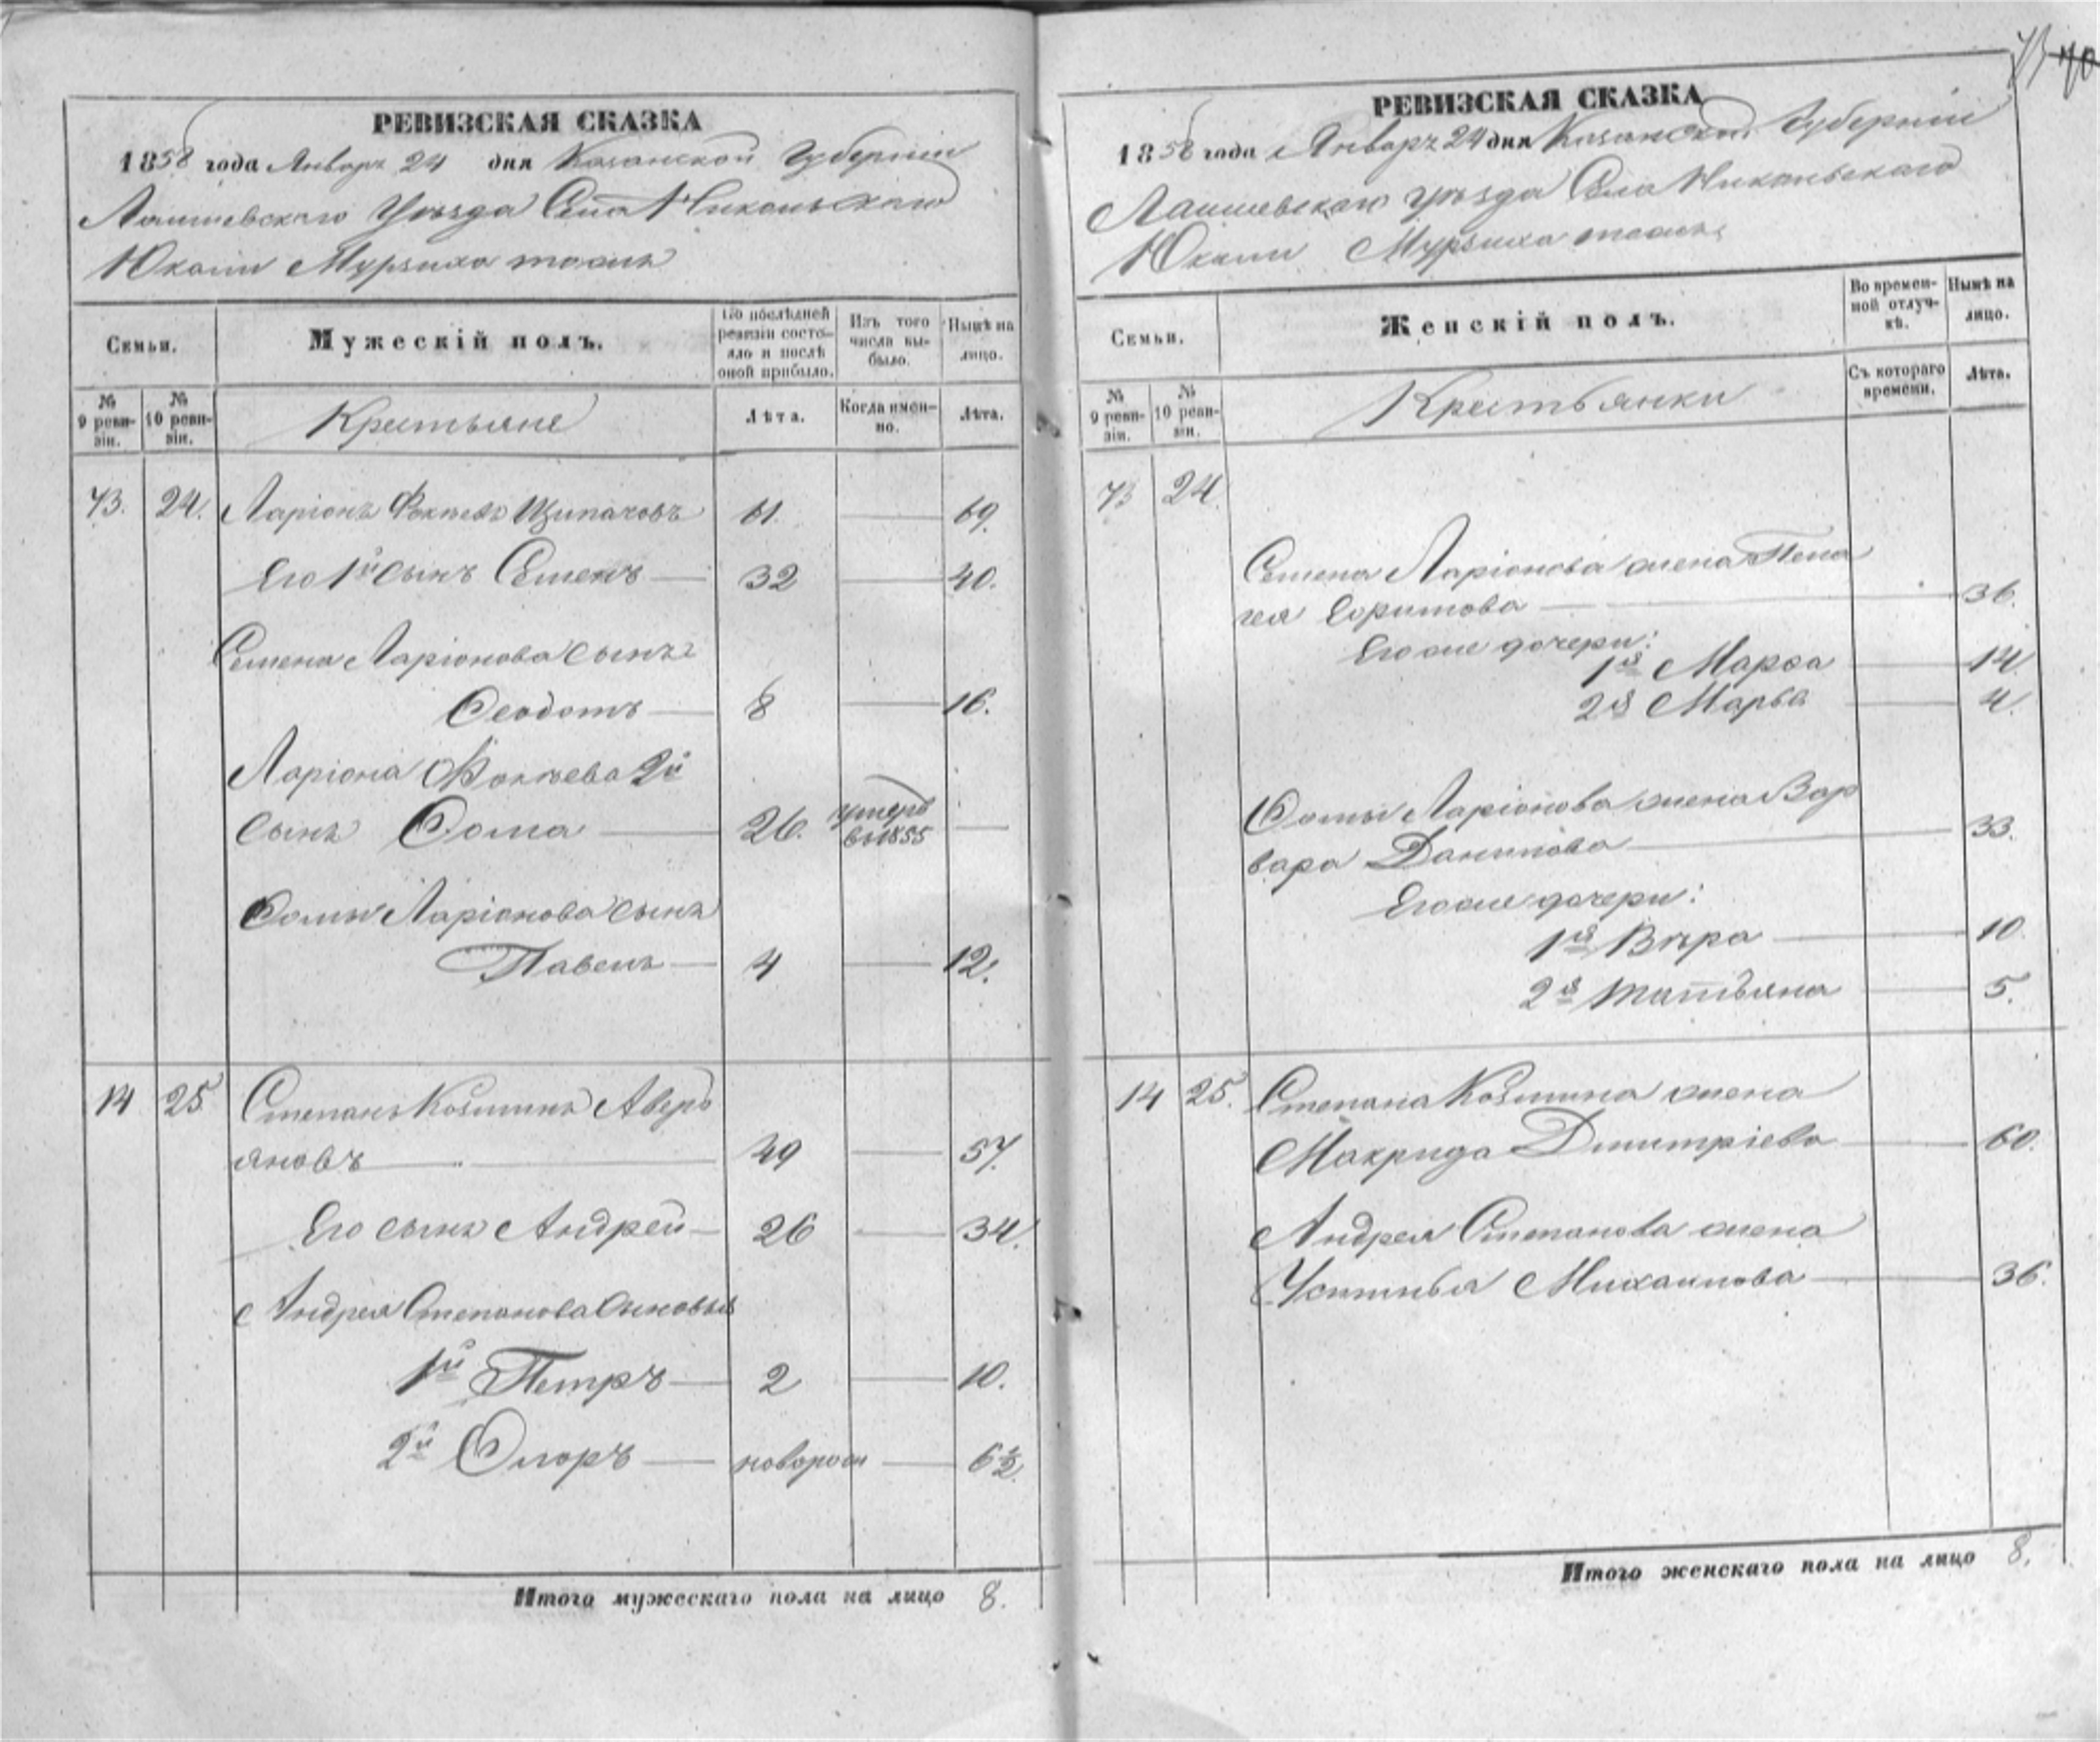 РЕВИЗСКАЯ СКАЗКА
1858 года Январ. 24 дня Казанской Губерніи
Лаишевскаго Уѣзда Села Никольскаго
Юкали Мурзиха тожъ
Семьи.
Мужескій полъ.
По послѣдней ревизіи состояло и послѣ оной прибыло.
Изъ того числа выбыло.
Нынѣ на лицо.
№ 9 ревизіи.
№ 10 ревизіи.
Крестьяне
Лѣта.
Когда именно.
Лѣта.
73. 24. Ларіонъ Фоктевъ Щипачовъ 61. 69.
Его 1й сынъ Семенъ 32 40.
Семена Ларіонова сынъ
Ѳеодотъ 8 16.
Ларіона Фоктева 2й
сынъ Ѳома 26. умеръ въ 1855
Ѳомы Ларіонова сынъ
Павелъ 4 12.
14 25 Степанъ Козминъ Аверь
яновъ 49 57.
Его сынъ Андрей 26 34.
Андрея Степанова сыновья
1й Петръ 2 10.
2й Егоръ ворожд 6½
Итого мужескаго пола на лицо 8.
73 70
РЕВИЗСКАЯ СКАЗКА
1858 года Январ. 24 дня Казанской Губерніи
Лаишевскаго Уѣзда Села Никольскаго
Юкали Мурзиха тожъ
Семьи.
Женскій полъ.
Во временной отлучкѣ.
Нынѣ на лицо.
№ 9 ревизіи.
№ 10 ревизіи.
Крестьянки
Съ котораго времени.
Лѣта.
73 24
Семена Ларіонова жена Пела
гея Ефимова 36.
Его же дочери:
1я Марѳа 14.
2я Марья 4.
Ѳомы Ларіонова жена Вар
вара Данилова 33.
Его же дочери:
1я Вѣра 10
2я Татьяна 5.
14 25. Степана Козмина жена
Макрида Дмитріева 60.
Андрея Степанова жена
Устинья Михаилова 36.
Итого женскаго пола на лицо 8.